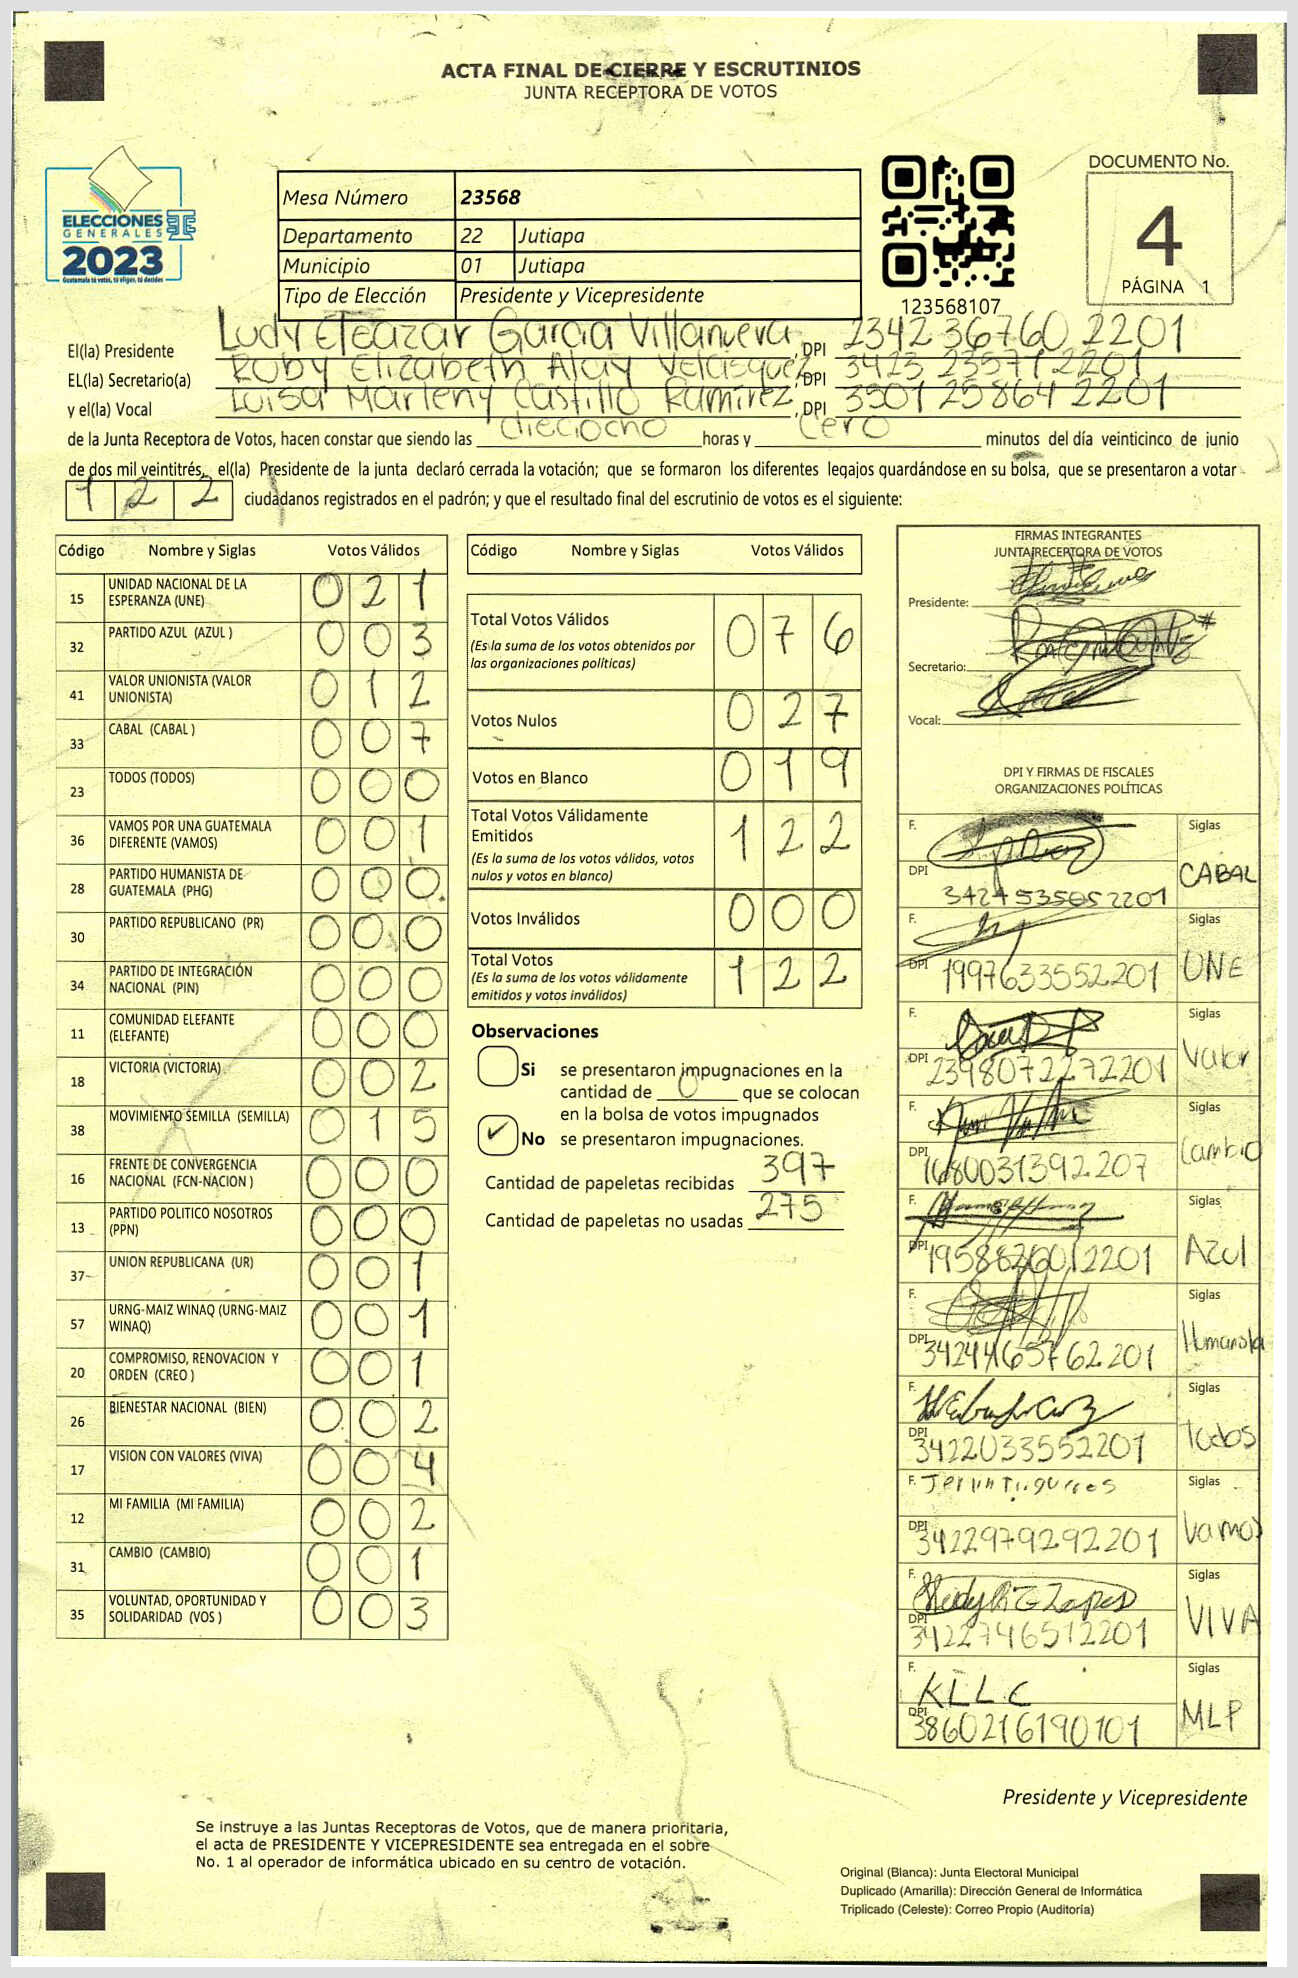 ACTA FINAL DE CIERRE Y ESCRUTINIOS
JUNTA RECEPTORA DE VOTOS
ELECCIONES
GENERALES
2023
Guatemala tú votas, tú eliges, tú decides
Mesa Número 23568
Departamento 22 Jutiapa
Municipio 01 Jutiapa
Tipo de Elección Presidente y Vicepresidente
123568107
DOCUMENTO No.
4
PÁGINA 1
El(la) Presidente Ludy Eleazar Garcia Villanueva, DPI 2342 36760 2201
EL(la) Secretario(a) Ruby Elizabeth Alay Velasquez, DPI 3423 23571 2201
y el(la) Vocal Luisa Marleny Castillo Ramírez, DPI 3501 25864 2201
de la Junta Receptora de Votos, hacen constar que siendo las dieciocho horas y cero minutos del día veinticinco de junio
de dos mil veintitrés, el(la) Presidente de la junta declaró cerrada la votación; que se formaron los diferentes legajos guardándose en su bolsa, que se presentaron a votar
122 ciudadanos registrados en el padrón; y que el resultado final del escrutinio de votos es el siguiente:
Código Nombre y Siglas Votos Válidos
15 UNIDAD NACIONAL DE LA ESPERANZA (UNE) 021
32 PARTIDO AZUL (AZUL ) 003
41 VALOR UNIONISTA (VALOR UNIONISTA) 012
33 CABAL (CABAL ) 007
23 TODOS (TODOS) 000
36 VAMOS POR UNA GUATEMALA DIFERENTE (VAMOS) 001
28 PARTIDO HUMANISTA DE GUATEMALA (PHG) 000
30 PARTIDO REPUBLICANO (PR) 000
34 PARTIDO DE INTEGRACIÓN NACIONAL (PIN) 000
11 COMUNIDAD ELEFANTE (ELEFANTE) 000
18 VICTORIA (VICTORIA) 002
38 MOVIMIENTO SEMILLA (SEMILLA) 015
16 FRENTE DE CONVERGENCIA NACIONAL (FCN-NACION ) 000
13 PARTIDO POLITICO NOSOTROS (PPN) 000
37 UNION REPUBLICANA (UR) 001
57 URNG-MAIZ WINAQ (URNG-MAIZ WINAQ) 001
20 COMPROMISO, RENOVACION Y ORDEN (CREO ) 001
26 BIENESTAR NACIONAL (BIEN) 002
17 VISION CON VALORES (VIVA) 004
12 MI FAMILIA (MI FAMILIA) 002
31 CAMBIO (CAMBIO) 001
35 VOLUNTAD, OPORTUNIDAD Y SOLIDARIDAD (VOS ) 003
Código Nombre y Siglas Votos Válidos
Total Votos Válidos 076
(Es la suma de los votos obtenidos por
las organizaciones políticas)
Votos Nulos 027
Votos en Blanco 019
Total Votos Válidamente
Emitidos 122
(Es la suma de los votos válidos, votos
nulos y votos en blanco)
Votos Inválidos 000
Total Votos 122
(Es la suma de los votos válidamente
emitidos y votos inválidos)
Observaciones
Si se presentaron impugnaciones en la
cantidad de 0 que se colocan
en la bolsa de votos impugnados
✓ No se presentaron impugnaciones.
Cantidad de papeletas recibidas 397
Cantidad de papeletas no usadas 275
FIRMAS INTEGRANTES
JUNTA RECEPTORA DE VOTOS
Presidente:
Secretario:
Vocal:
DPI Y FIRMAS DE FISCALES
ORGANIZACIONES POLÍTICAS
F. Siglas
DPI 3424535052201 CABAL
F. Siglas
DPI 1997633552201 UNE
F. Siglas
DPI 2398072272201 Valor
F. Siglas
DPI 1680031392207 Cambio
F. Siglas
DPI 1958826012201 Azul
F. Siglas
DPI 3424465762201 Humanista
F. Siglas
DPI 3422033552201 Todos
F. Siglas
DPI 3422979292201 Vamos
F. Siglas
DPI 3422746512201 VIVA
F. KLLC Siglas
DPI 3860216190101 MLP
Presidente y Vicepresidente
Se instruye a las Juntas Receptoras de Votos, que de manera prioritaria,
el acta de PRESIDENTE Y VICEPRESIDENTE sea entregada en el sobre
No. 1 al operador de informática ubicado en su centro de votación.
Original (Blanca): Junta Electoral Municipal
Duplicado (Amarilla): Dirección General de Informática
Triplicado (Celeste): Correo Propio (Auditoría)